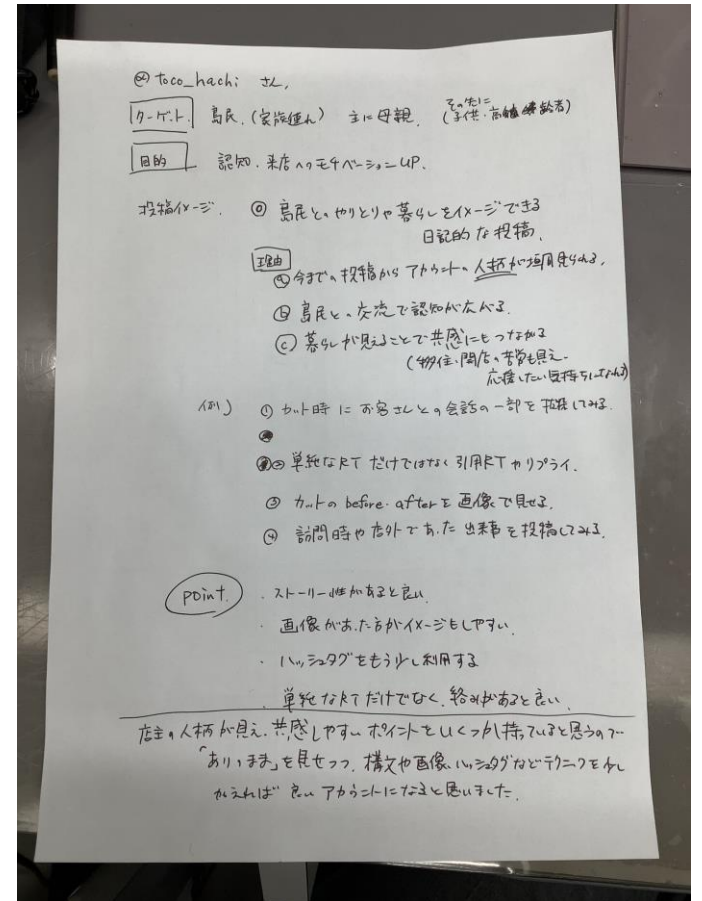 @toco_hachi さん,
ターゲット 島民.(家族連れ) 主に母親. その先に(子供・高齢者)
目的 認知.来店へのモチベーションUP.
投稿イメージ. ◎ 島民とのやりとりや暮らしをイメージできる
日記的な投稿.
理由
ⓐ今までの投稿からアカウントの人柄が垣間見られる.
ⓑ 島民との交流で認知が広がる.
ⓒ 暮らしが見えることで共感にもつながる
(移住・開店の苦労も見え.
応援したい気持ちになれる)
例) ① カット時にお客さんとの会話の一部を投稿してみる.
② 単純なRTだけではなく引用RTやリプライ.
③ カットのbefore・afterを画像で見せる.
④ 訪問時や店外であった出来事を投稿してみる.
point. ・ストーリー性があると良い
・画像があった方がイメージもしやすい.
・ハッシュタグをもう少し利用する
・単純なRTだけでなく、絡みがあると良い.
店主の人柄が見え、共感しやすいポイントをいくつか持っていると思うので
「ありのまま」を見せつつ、構文や画像、ハッシュタグなどテクニックを少し
加えれば良いアカウントになると思いました.